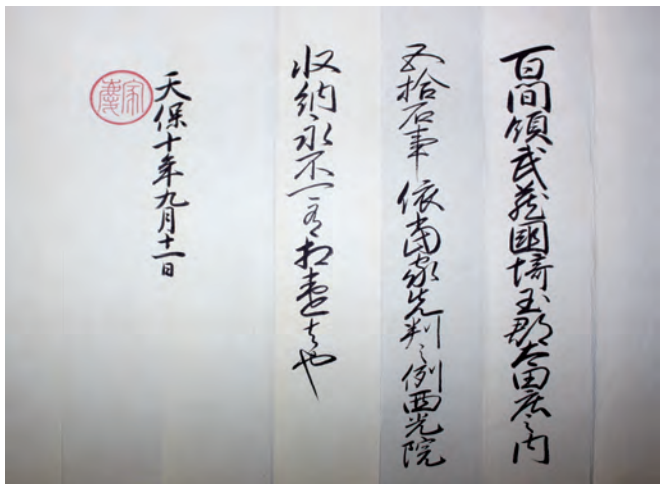 百間領武蔵國埼玉郡太田庄之内
五拾石事依当家先判之例西光院
収納永不可有相違者也
天保十年九月十一日
家慶